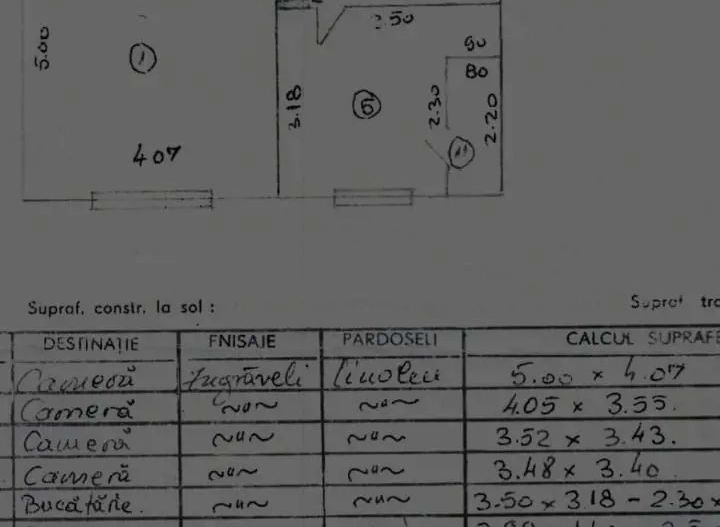 2.50
5.00
1
90
80
3.18
5
2.30
2.20
407
11
Supraf. constr. la sol :
Supraf. tra
DESTINAȚIE FNISAJE PARDOSELI CALCUL SUPRAFE
Cameră zugrăveli linoleu 5.00 x 4.07
Cameră ~"~ ~"~ 4.05 x 3.55.
Cameră ~"~ ~"~ 3.52 x 3.43.
Cameră ~"~ ~"~ 3.48 x 3.40
Bucătărie. ~"~ ~"~ 3.50 x 3.18 - 2.30 x